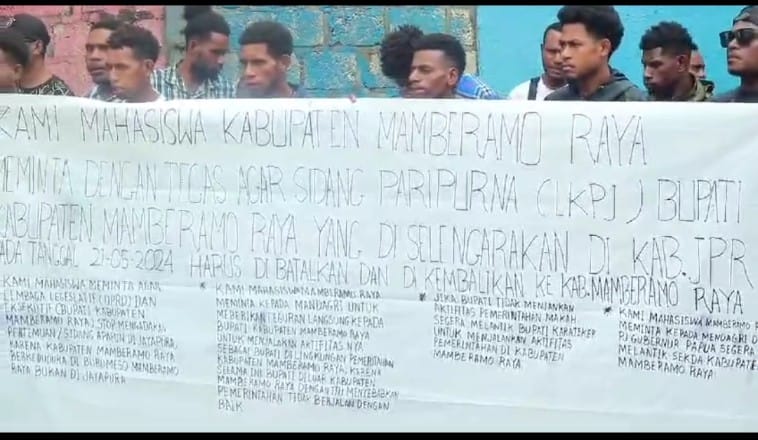 KAMI MAHASISWA KABUPATEN MAMBERAMO RAYA
MEMINTA DENGAN TEGAS AGAR SIDANG PARIPURNA (LKPJ) BUPATI
KABUPATEN MAMBERAMO RAYA YANG DI SELENGARAKAN DI KAB.JPR
PADA TANGGAL 21-05-2024 HARUS DI BATALKAN DAN DI KEMBALIKAN KE KAB.MAMBERAMO RAYA
KAMI MAHASISWA MEMINTA AGAR
LEMBAGA LEGESLATIF (DPRD) DAN
EKSEKUTIF (BUPATI KABUPATEN
MAMBERAMO RAYA) STOP MENGADAKAN
PERTEMUAN/SIDANG APAPUN DI JAYAPURA,
KARENA KABUPATEN MAMBERAMO RAYA
BERKEDUDUKA DI BURUMESO MAMBERAMO
RAYA BUKAN DI JAYAPURA
* KAMI MAHASISWA MAMBERAMO RAYA
MEMINTA KEPADA MANDAGRI UNTUK
MEBERIKAN TEGURAN LANGSUNG KEPADA
BUPATI KABUPATEN MAMBERAMO RAYA
UNTUK MENJALANKAN AKTIFITAS NYA
SEBAGAI BUPATI DI LINGKUNGAN PEMERINTAHAN
KABUPATEN MAMBERAMO RAYA. KERENA
SELAMA INI BUPATI DI LUAR KABUPATEN
MAMBERAMO RAYA DENGAN ITU MENYEBABKAN
PEMERINTAHAN TIDAK BERJALAN DENGAN
BAIK
* JIKA BUPATI TIDAK MENJANKAN
AKTIFITAS PEMERINTAHAN MAKAH
SEGERA MELANTIK BUPATI KARATEKER
UNTUK MENJALANKAN AKTIFITAS
PEMERINTAHAN DI KABUPATEN
MAMBERAMO RAYA
* KAMI MAHASISWA MAMBERAMO
MEMINTA KEPADA MENDAGRI
PJ GUBERNUR PAPUA SEGERA
MELANTIK SEKDA KABUPATEN
MAMBERAMO RAYA